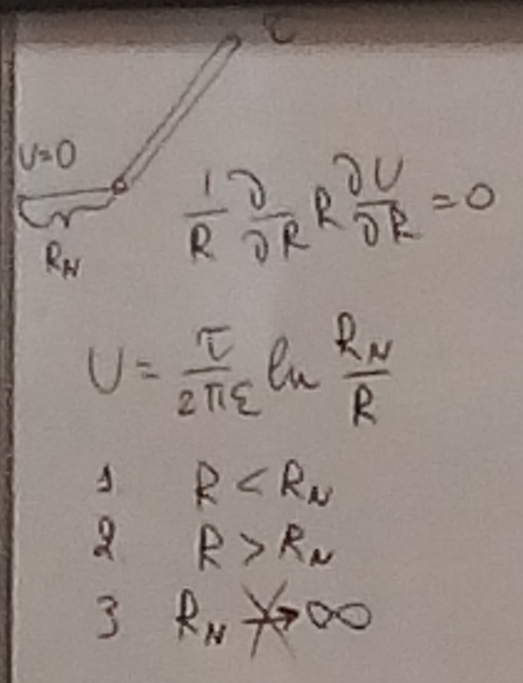 τ
U=0
R_N
1/R ∂/∂R R ∂U/∂R = 0
U = τ/2πε ln R_N/R
1 R < R_N
2 R > R_N
3 R_N ↛ ∞